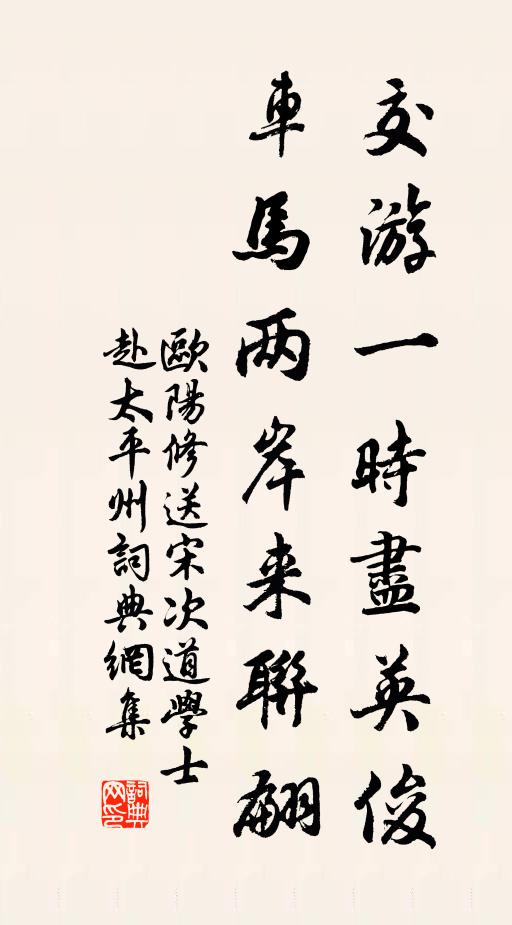 交游一時盡英俊
車馬两岸来聯翩
歐陽修送宋次道學士
赴太平州詞典網集
詞典網印